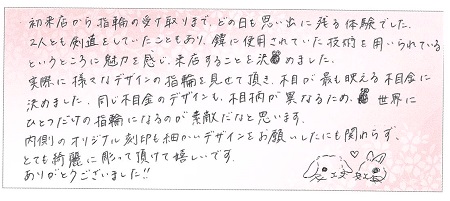 初来店から指輪の受け取りまで、どの日も思い出に残る体験でした。
2人とも剣道をしていたこともあり、鍔に使用されていた技術を用いられている
というところに魅力を感じ、来店することを決めました。
実際に様々なデザインの指輪を見せて頂き、木目が最も映える木目金に
決めました。同じ木目金のデザインも、木目柄が異なるため、世界に
ひとつだけの指輪になるのが素敵だなと思います。
内側のオリジナル刻印も細かいデザインをお願いしたにも関わらず、
とても綺麗に彫って頂けて嬉しいです。
ありがとうございました!!